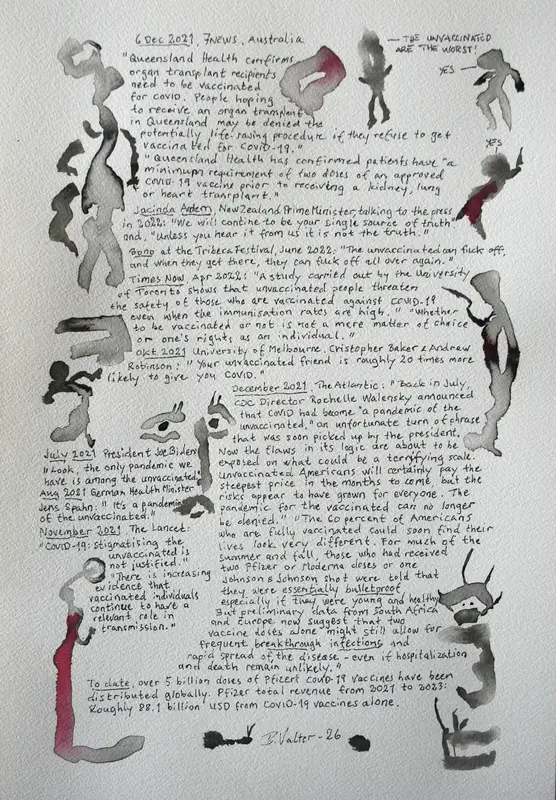 6 Dec 2021, 7NEWS, Australia
— THE UNVACCINATED
ARE THE WORST!
"Queensland Health confirms
organ transplant recipients
need to be vaccinated
for COVID. People hoping
to receive an organ transplant
in Queensland may be denied the
potentially life-saving procedure if they refuse to get
vaccinated for COVID-19."
YES —
YES
"Queensland Health has confirmed patients have "a
minimum requirement of two doses of an approved
COVID-19 vaccine prior to receiving a kidney, lung
or heart transplant."
Jacinda Ardern, New Zealand Prime Minister, talking to the press
in 2022: "We will contine to be your single source of truth"
and, "Unless you hear it from us it is not the truth."
Bono at the Tribeca Festival, June 2022: "The unvaccinated can fuck off,
and when they get there, they can fuck off all over again."
Times Now, Apr 2022: "A study carried out by the University
of Toronto shows that unvaccinated people threaten
the safety of those who are vaccinated against COVID-19
even when the immunisation rates are high." "Whether
to be vaccinated or not is not a mere matter of choice
or one's rights as an individual."
Okt 2021 University of Melbourne, Cristopher Baker & Andrew
Robinson: "Your unvaccinated friend is roughly 20 times more
likely to give you COVID."
December 2021, The Atlantic: "Back in July,
CDC Director Rochelle Walensky announced
that COVID had become "a pandemic of the
unvaccinated," an unfortunate turn of phrase
that was soon picked up by the president.
Now the flaws in its logic are about to be
exposed on what could be a terrifying scale.
Unvaccinated Americans will certainly pay the
steepest price in the months to come, but the
risks appear to have grown for everyone. The
pandemic for the vaccinated can no longer
be denied." "The 60 percent of Americans
who are fully vaccinated could soon find their
lives look very different. For much of the
summer and fall, those who had received
two Pfizer or Moderna doses or one
Johnson & Johnson shot were told that
they were essentially bulletproof,
especially if they were young and healthy.
But preliminary data from South Africa
and Europe now suggest that two
vaccine doses alone might still allow for
frequent breakthrough infections and
rapid spread of the disease - even if hospitalization
and death remain unlikely."
July 2021 President Joe Biden:
"Look, the only pandemic we
have is among the unvaccinated"
Aug 2021 German Health Minister
Jens Spahn: "It's a pandemic
of the unvaccinated."
November 2021 The Lancet:
"COVID-19: stigmatising the
unvaccinated is
not justified."
"There is increasing
evidence that
vaccinated individuals
continue to have a
relevant role in
transmission."
To date, over 5 billion doses of Pfizer's COVID-19 vaccines have been
distributed globally. Pfizer total revenue from 2021 to 2023:
Roughly 88.1 billion USD from COVID-19 vaccines alone.
B. Valter - 26